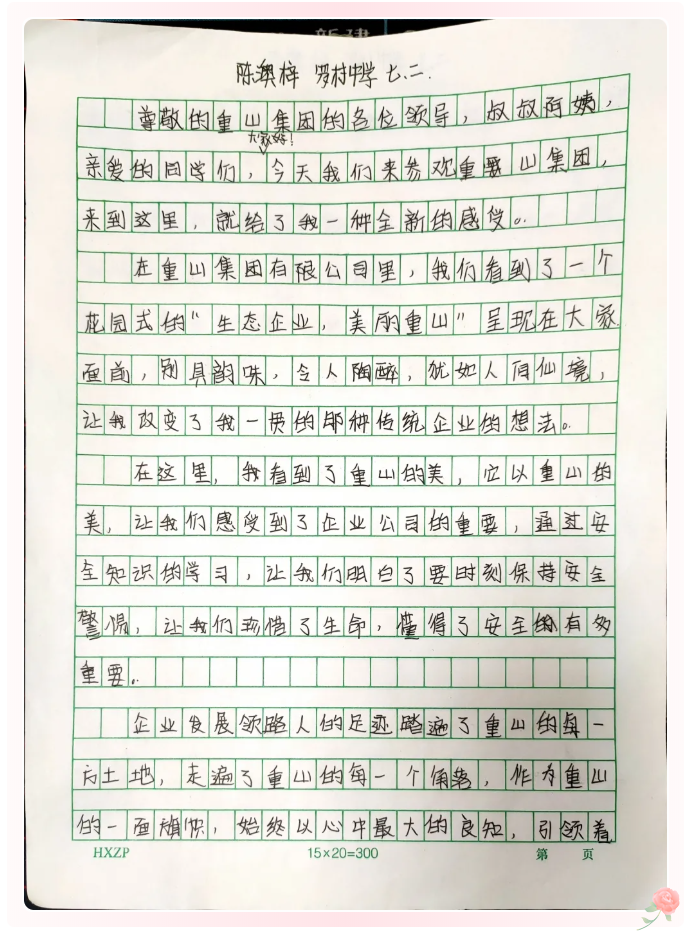 陈澳梓 罗村中学 七、二.
尊敬的重山集团的各位领导，叔叔阿姨，
大家好！
亲爱的同学们，今天我们来参观重山集团，
来到这里，就给了我一种全新的感受。
在重山集团有限公司里，我们看到了一个
花园式的"生态企业，美丽重山"呈现在大家
面前，别具韵味，令人陶醉，犹如人间仙境，
让我改变了我一贯的那种传统企业的想法。
在这里，我看到了重山的美，它以重山的
美，让我们感受到了企业公司的重要，通过安
全知识的学习，让我们明白了要时刻保持安全
警惕，让我们珍惜了生命，懂得了安全的有多
重要。
企业发展领路人的足迹踏遍了重山的每一
方土地，走遍了重山的每一个角落，作为重山
的一面旗帜，始终以心中最大的良知，引领着
HXZP 15×20=300 第 页